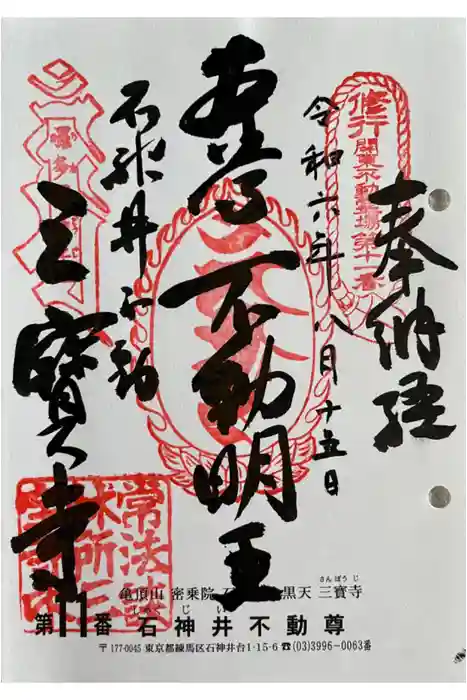 奉納経
修行 関東不動霊場 第十一番
令和六年八月十五日
本尊 不動明王
石神井不動
三寳寺
亀頂山 密乗院 
黒天 三寳寺
さんぽうじ
しゃくじい
第11番 石神井不動尊
〒177-0045 東京都練馬区石神井台1-15-6 ☎(03)3996-0063番